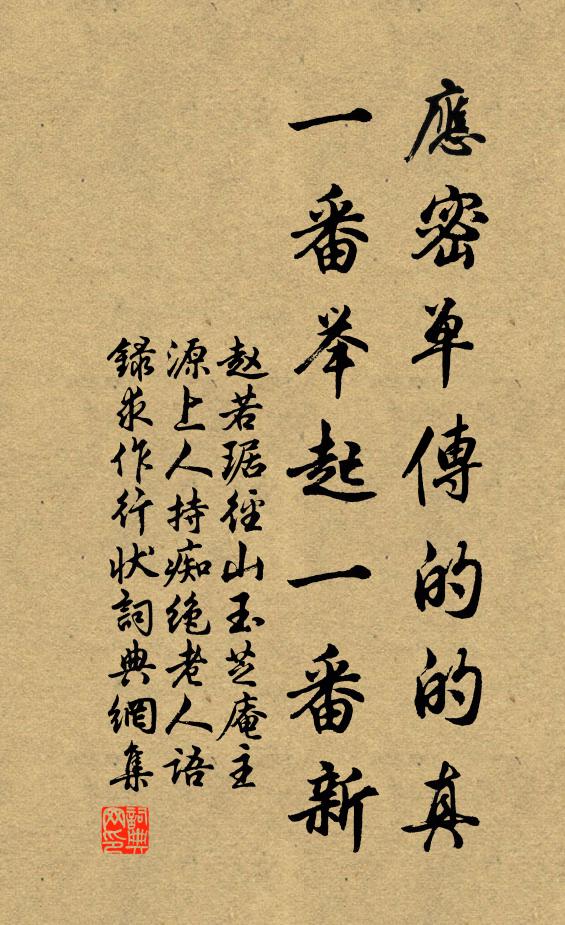 應密单傳的的真
一番举起一番新
赵若琚徑山玉芝庵主
源上人持痴绝老人语
録求作行状詞典網集
詞典网印